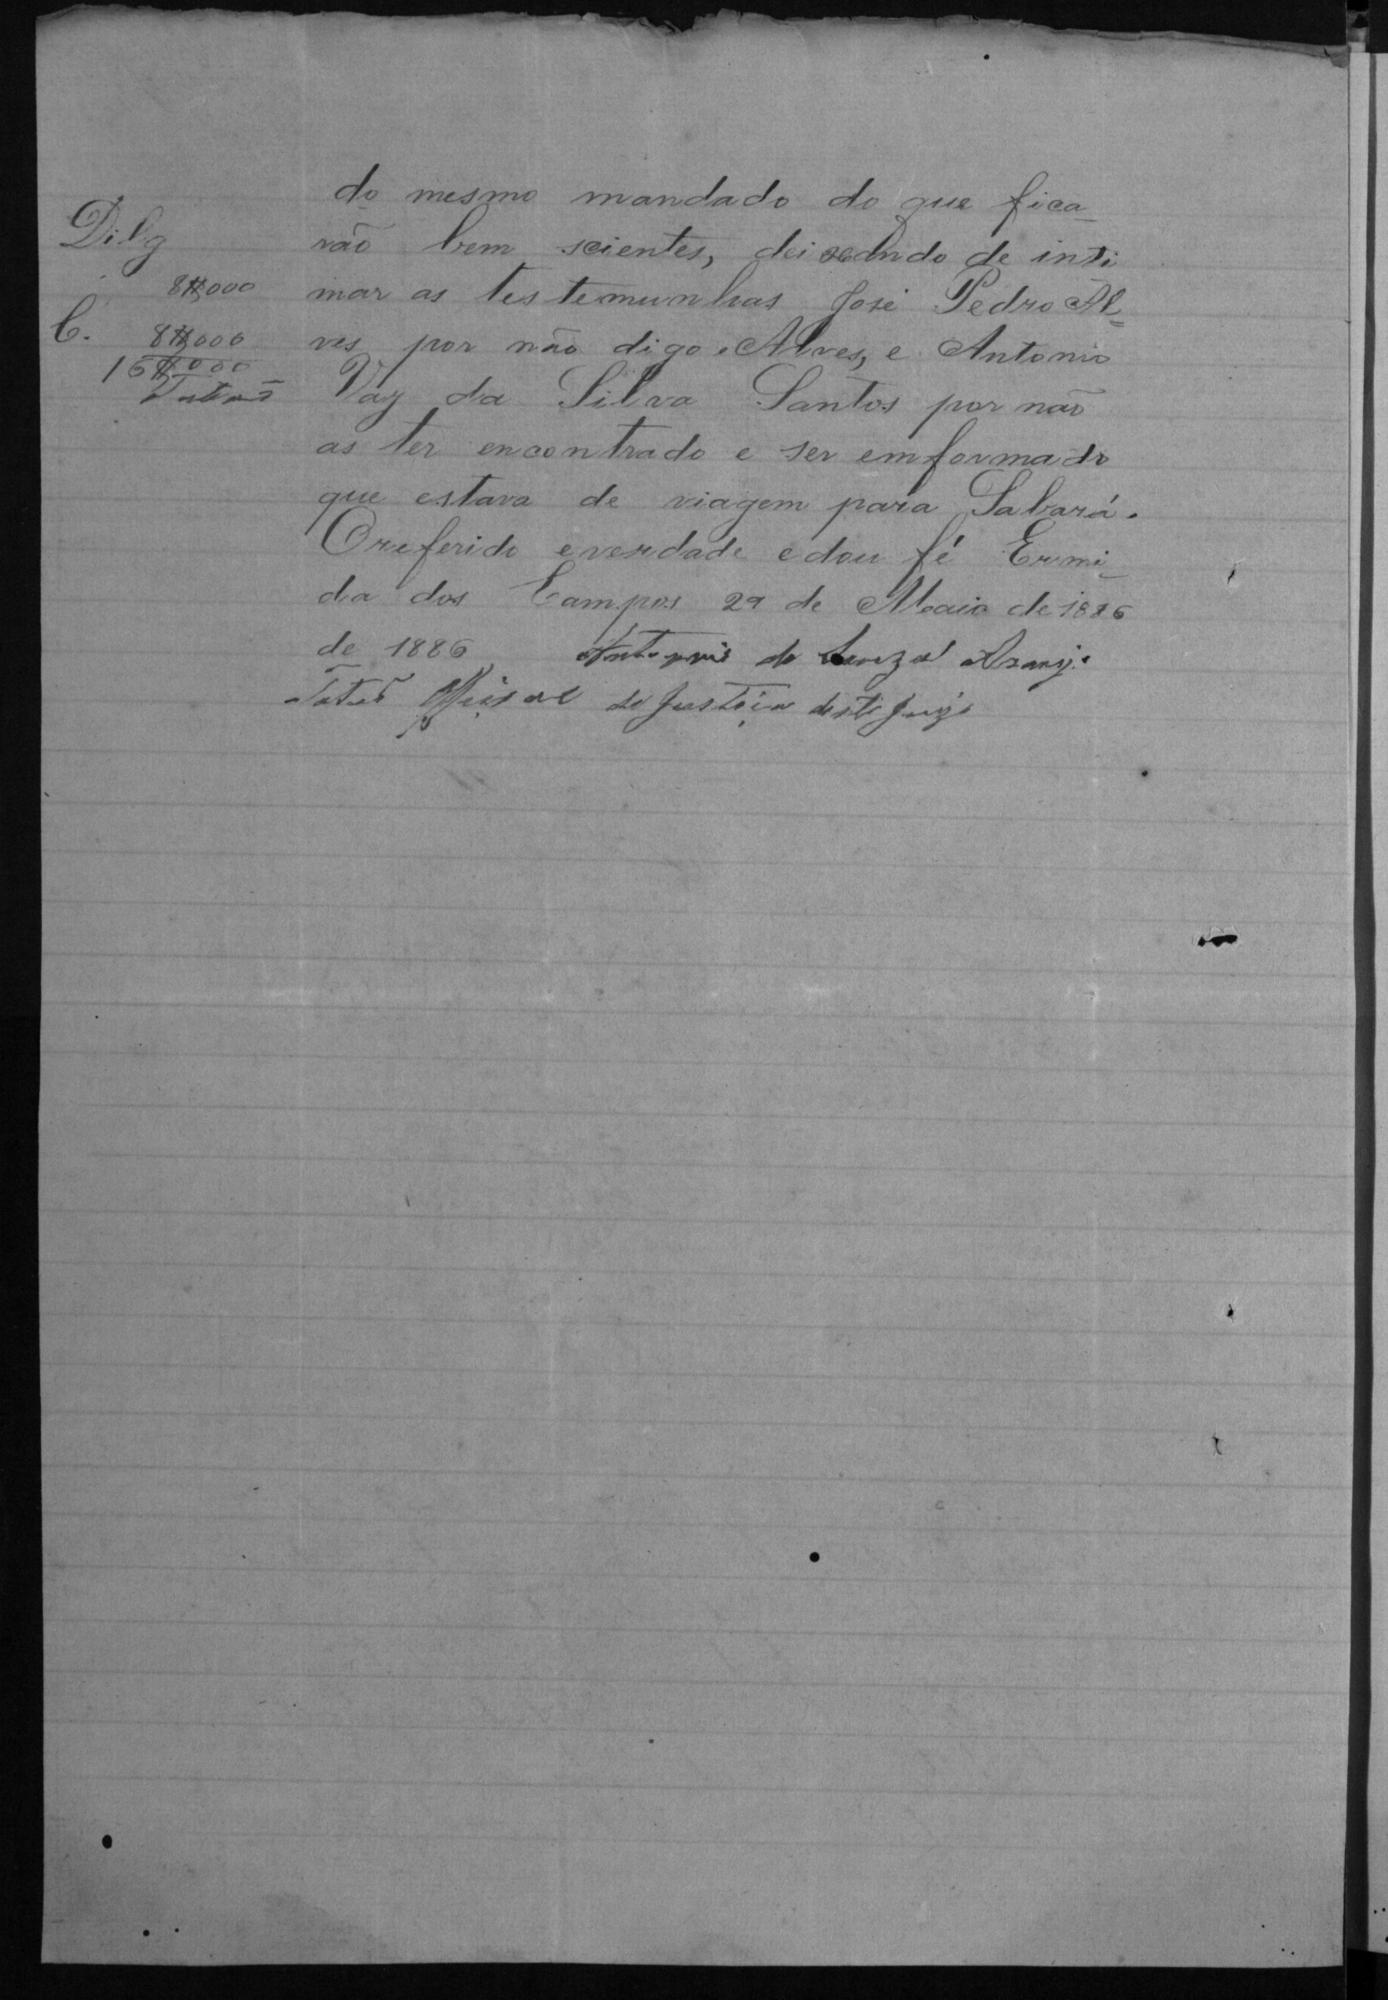 do mesmo mandado do que fica
rão bem scientes, deixando de inti
mar as testemunhas José Pedro Al=
ves por não digo Alves, e Antonio
Vaz da Silva Santos por não
as ter encontrado e ser emformado
que estava de viagem para Sabará.
Oreferido everdade edou fé Ermi
da dos Campos 29 de Maio de 1886
de 1886 Antonio de Souza Araujo
Official de Justiça deste Juizo
Dilg
8$000
C. 8$000
16$000